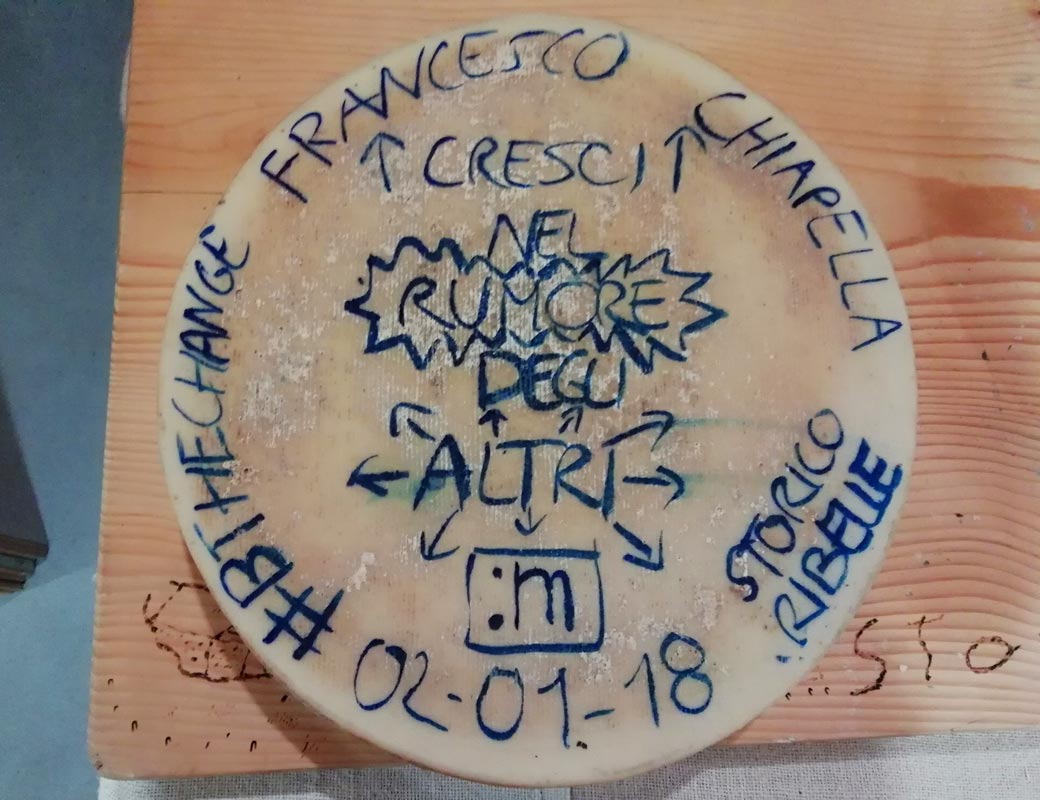 FRANCESCO CHIAPELLA
↑ CRESCI ↑
NEL
RUMORE
DEGLI
ALTRI
:m
02-01-18
#BTHECHANGE
STORICO
RIBELLE
STO